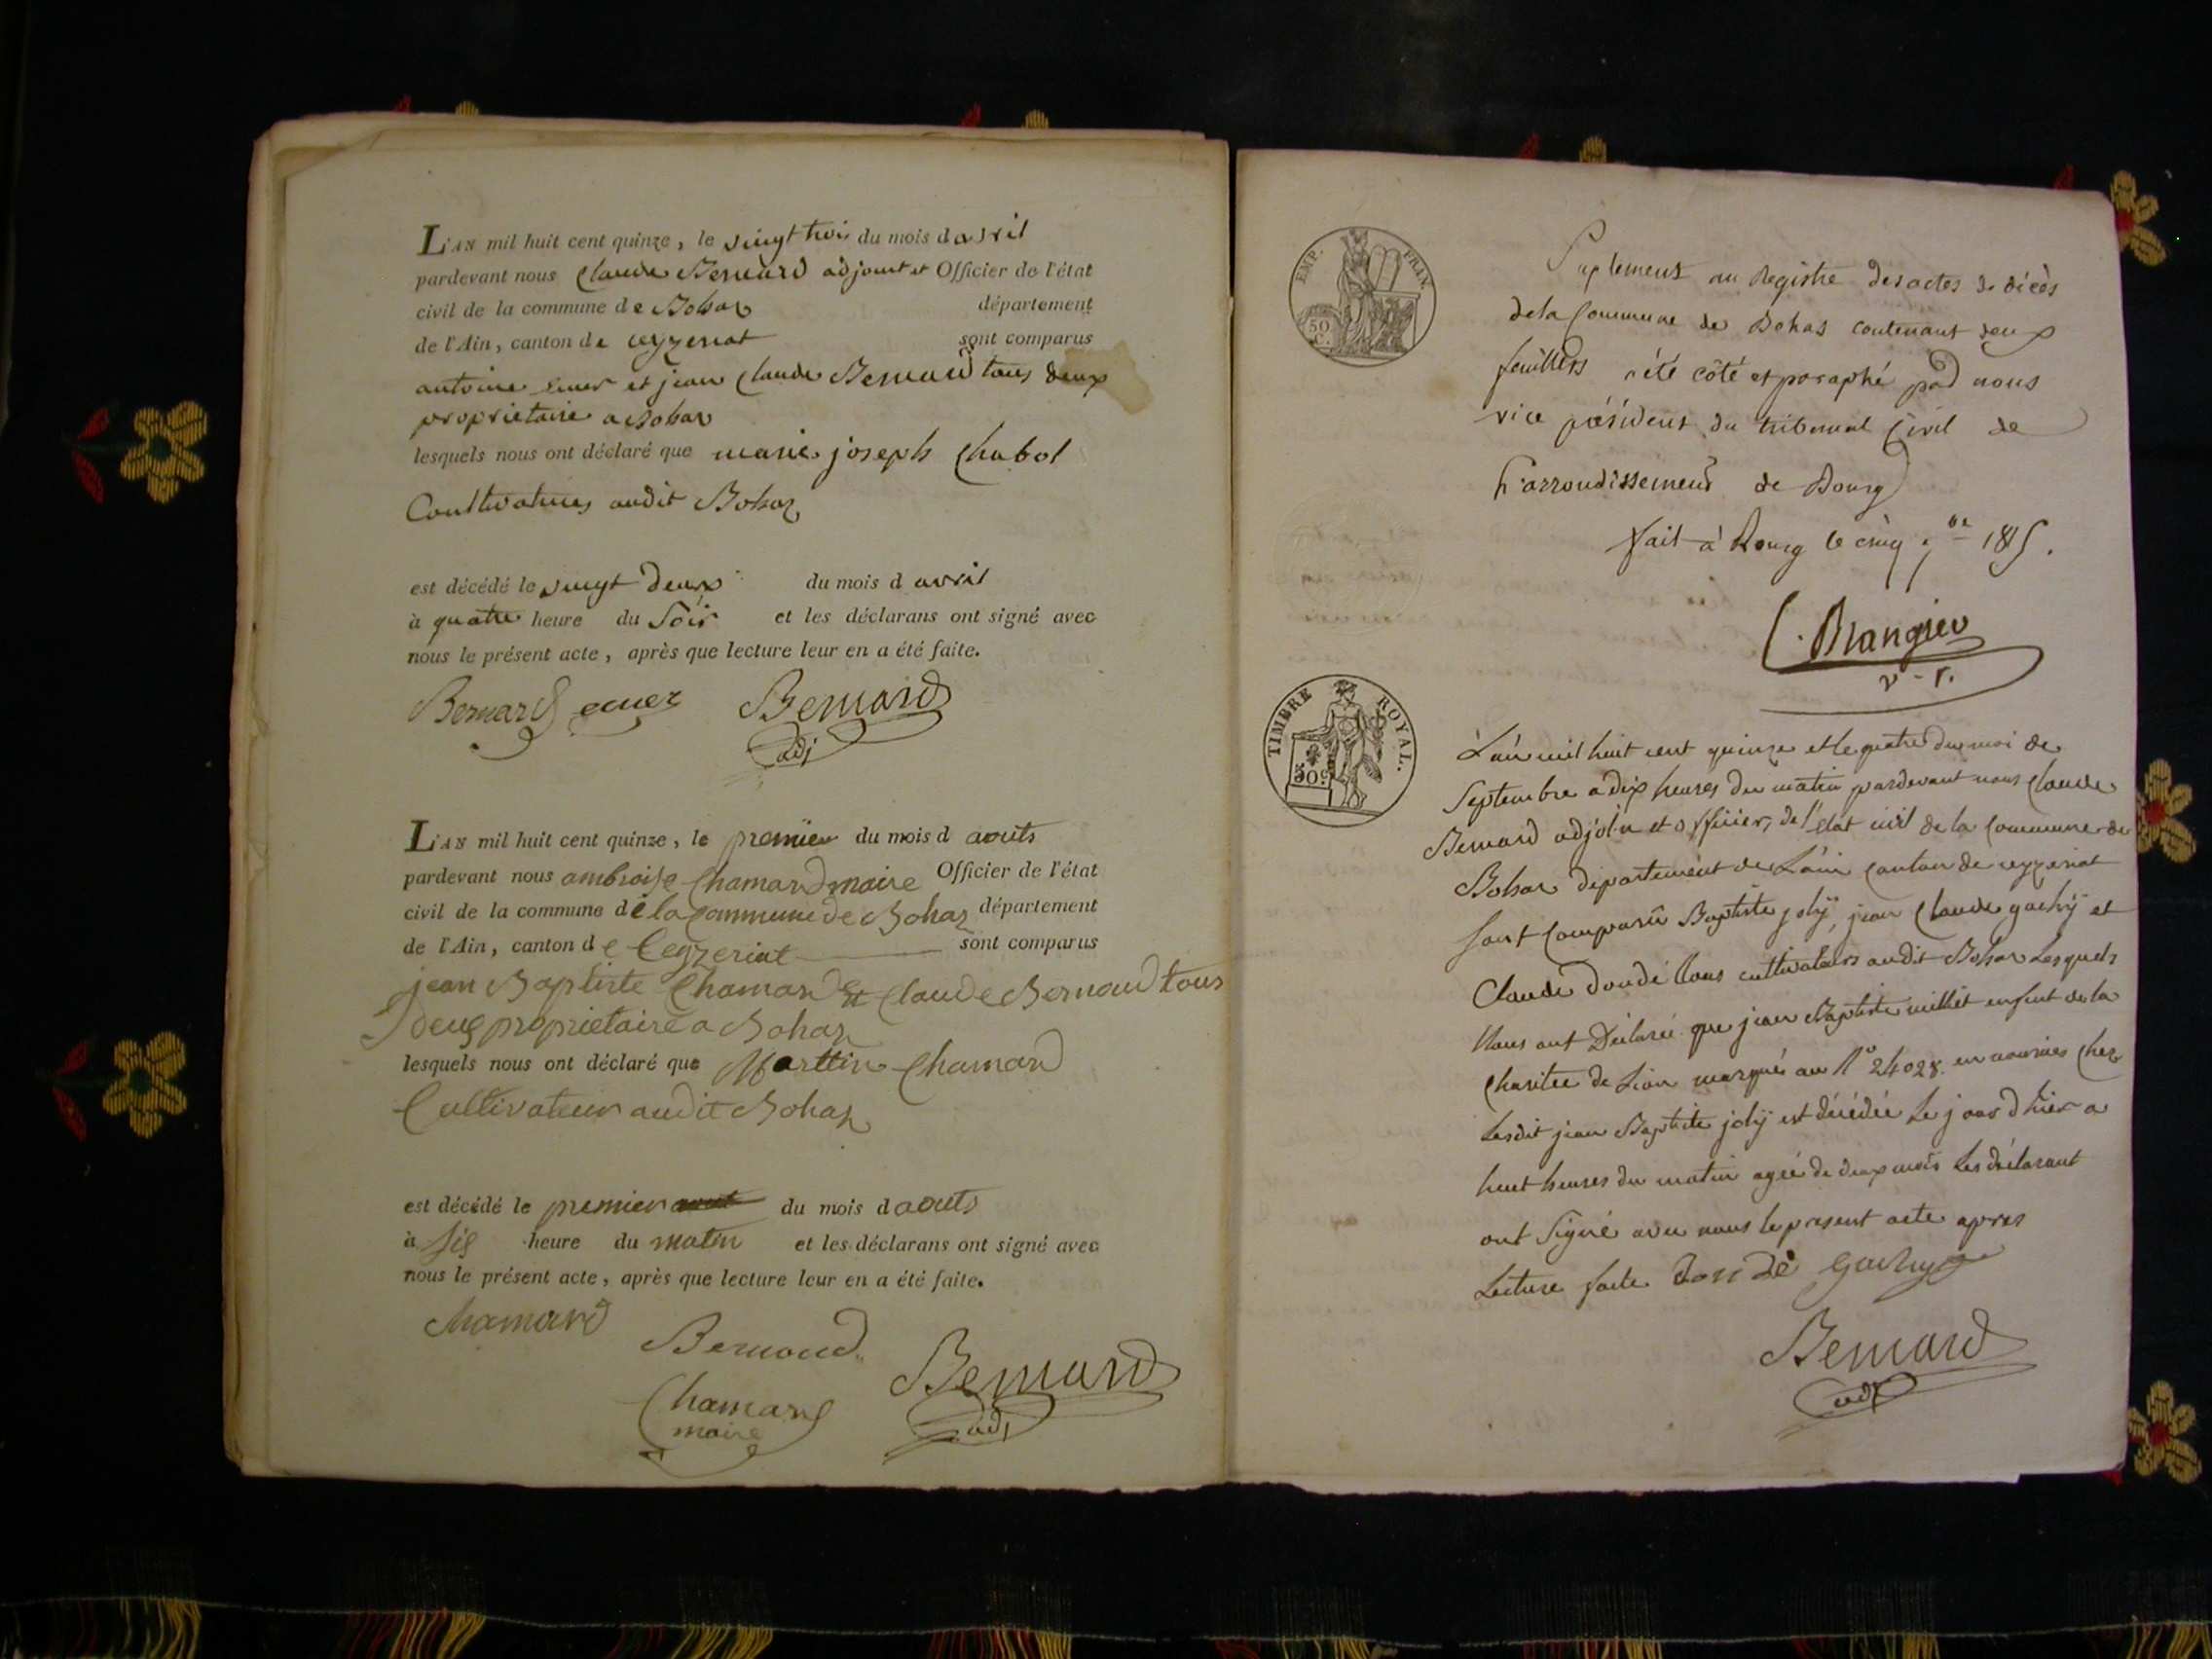 L'AN mil huit cent quinze, le vingt trois du mois d avril
pardevant nous Claude Bernard adjoint et Officier de l'état
civil de la commune de Bohas département
de l'Ain, canton de ceyzeriat sont comparus
antoine et jean Claude Bernard tous deux
proprietaire a Bohas
lesquels nous ont déclaré que marie joseph Chabot
Coultivatrices audit Bohas
est décédé le vingt deux du mois d avril
à quatre heure du Soir et les déclarans ont signé avec
nous le présent acte, après que lecture leur en a été faite.
Bernard Bernard
adj
L'AN mil huit cent quinze, le premier du mois d aouts
pardevant nous ambroise Chamard maire Officier de l'état
civil de la commune de la Commune de Bohas département
de l'Ain, canton de Ceyzeriat sont comparus
jean Baptiste Chamard et Claude Bernard tous
deus proprietaire a Bohas
lesquels nous ont déclaré que Marttin Chamard
Cultivateur audit Bohas
est décédé le premier du mois d aouts
à sis heure du matin et les déclarans ont signé avec
nous le présent acte, après que lecture leur en a été faite.
chamard
Bernard
Bernard
Chamard
maire
adj
EMP. FRAN.
50
C.
Suplement au Registre des actes de décès
de la Commune de Bohas contenant deux
feuillets a été côté et paraphé par nous
vice président du tribunal Civil de
l'arrondissement de Bourg
fait à Bourg le cinq 7bre 1815.
C. Brangier
v. p.
TIMBRE ROYAL.
50 c
L'an mil huit cent quinze et le quatre du moi de
Septembre a dix heures du matin pardevant nous Claude
Bernard adjoin et officier de l'etat civil de la Commune de
Bohas département de L'ain Canton de ceyzeriat
sont Comparû Baptiste jolÿ, jean Claude gachÿ et
Claude Dondé tous cultivateurs audit Bohas Lesquels
Nous ont Déclaré que jean Baptiste millet enfent de la
Charitee de Lion marqué au N° 24028 en nourices Chez
Lesdit jean Baptiste jolÿ est décédée Le jour d'hier a
huit heures du matin agée de deux mois Les déclarant
ont Signé avec nous le present acte apres
Lecture faite Dondé gachy
Bernard
adj